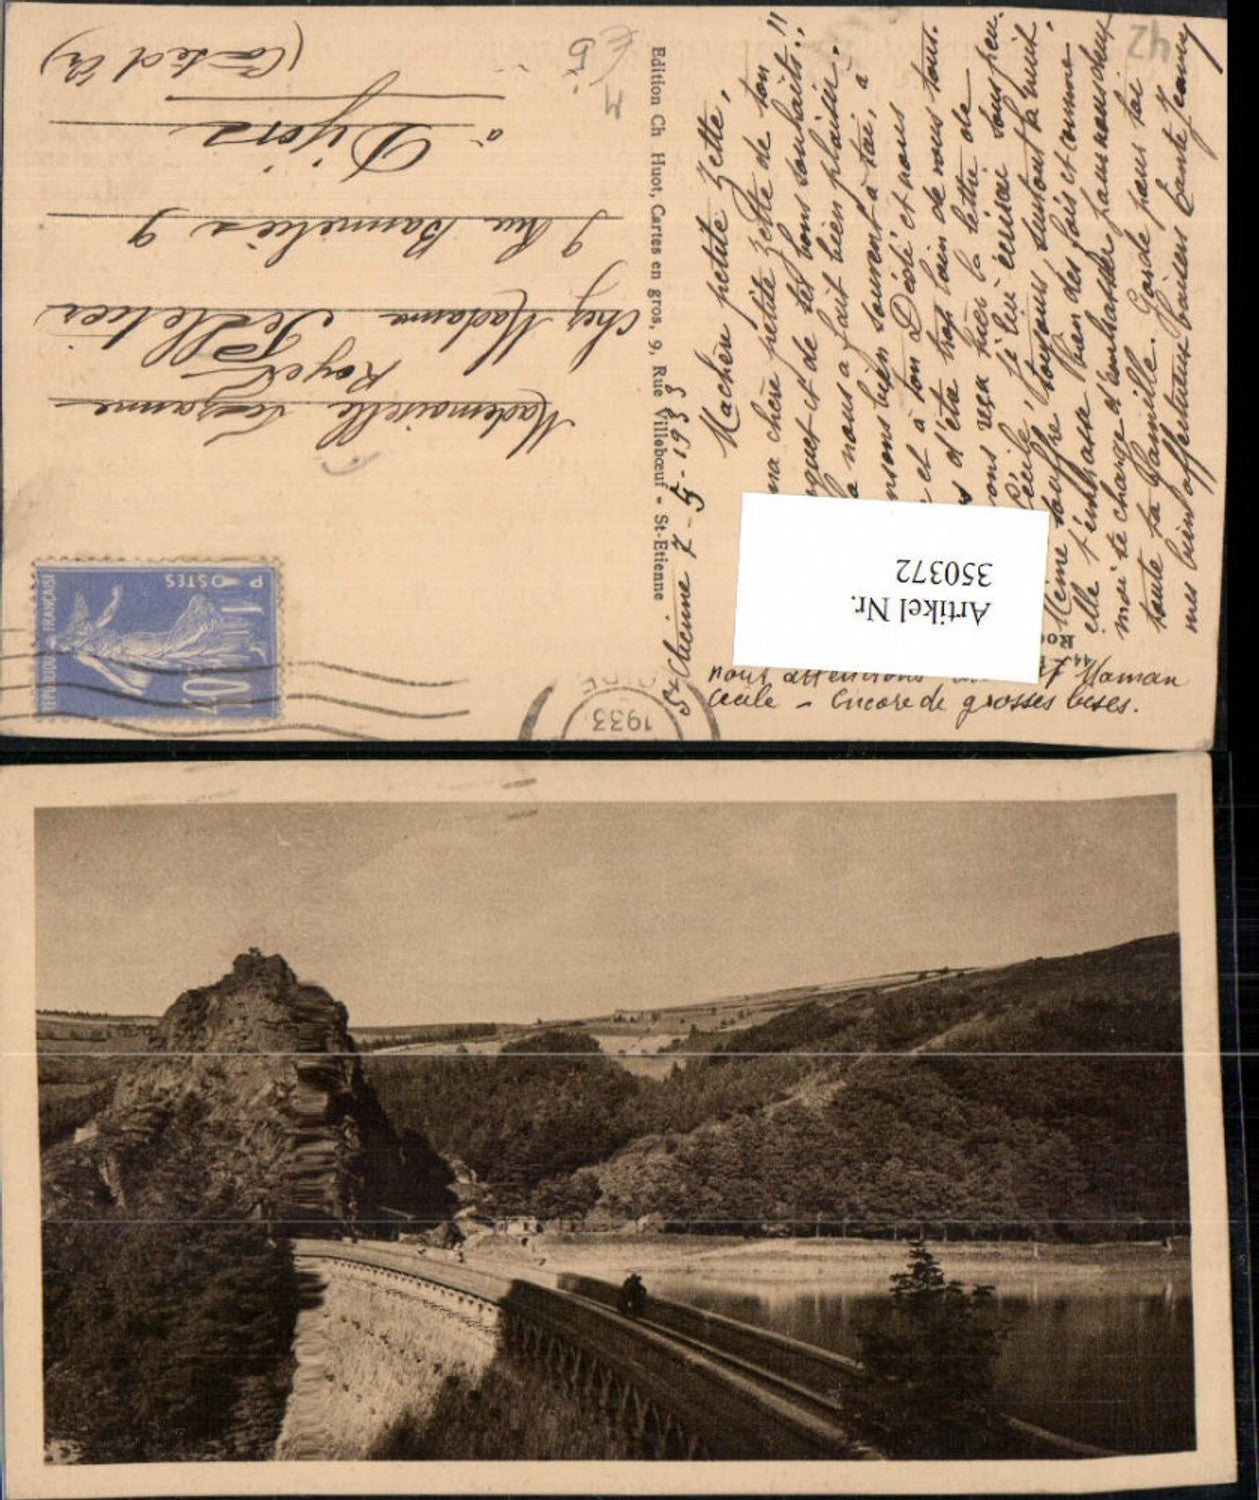 Ma chère petite Zette,
ma chère petite Zette de ton
et de tes bons souhaits!!
nous a fait bien plaisir.
bien souvent à toi, à
et à ton Dédé et nous
d'être trop loin de vous tous.
reçu hier la lettre de
Cécile, je lui écrirai sous peu.
Mémé souffre toujours, surtout la nuit,
elle t'embrasse bien des fois et comme
moi te charge d'embrasser pour nous deux
toute ta famille. Garde pour toi
mes bien affectueux baisers tante Jeanne
Maman
Cécile – Encore de grosses bises.
St Etienne 7-5-1933
42
Edition Ch Huot, Cartes en gros, 9, Rue Villebœuf - St-Etienne
Mademoiselle Suzanne
Royer
chez Madame Pelletier
9 Rue Bannelier 9
à Dijon
(Côte d'Or)
REPUBLIQUE FRANÇAISE
POSTES
1F
1933
Artikel Nr.
350372